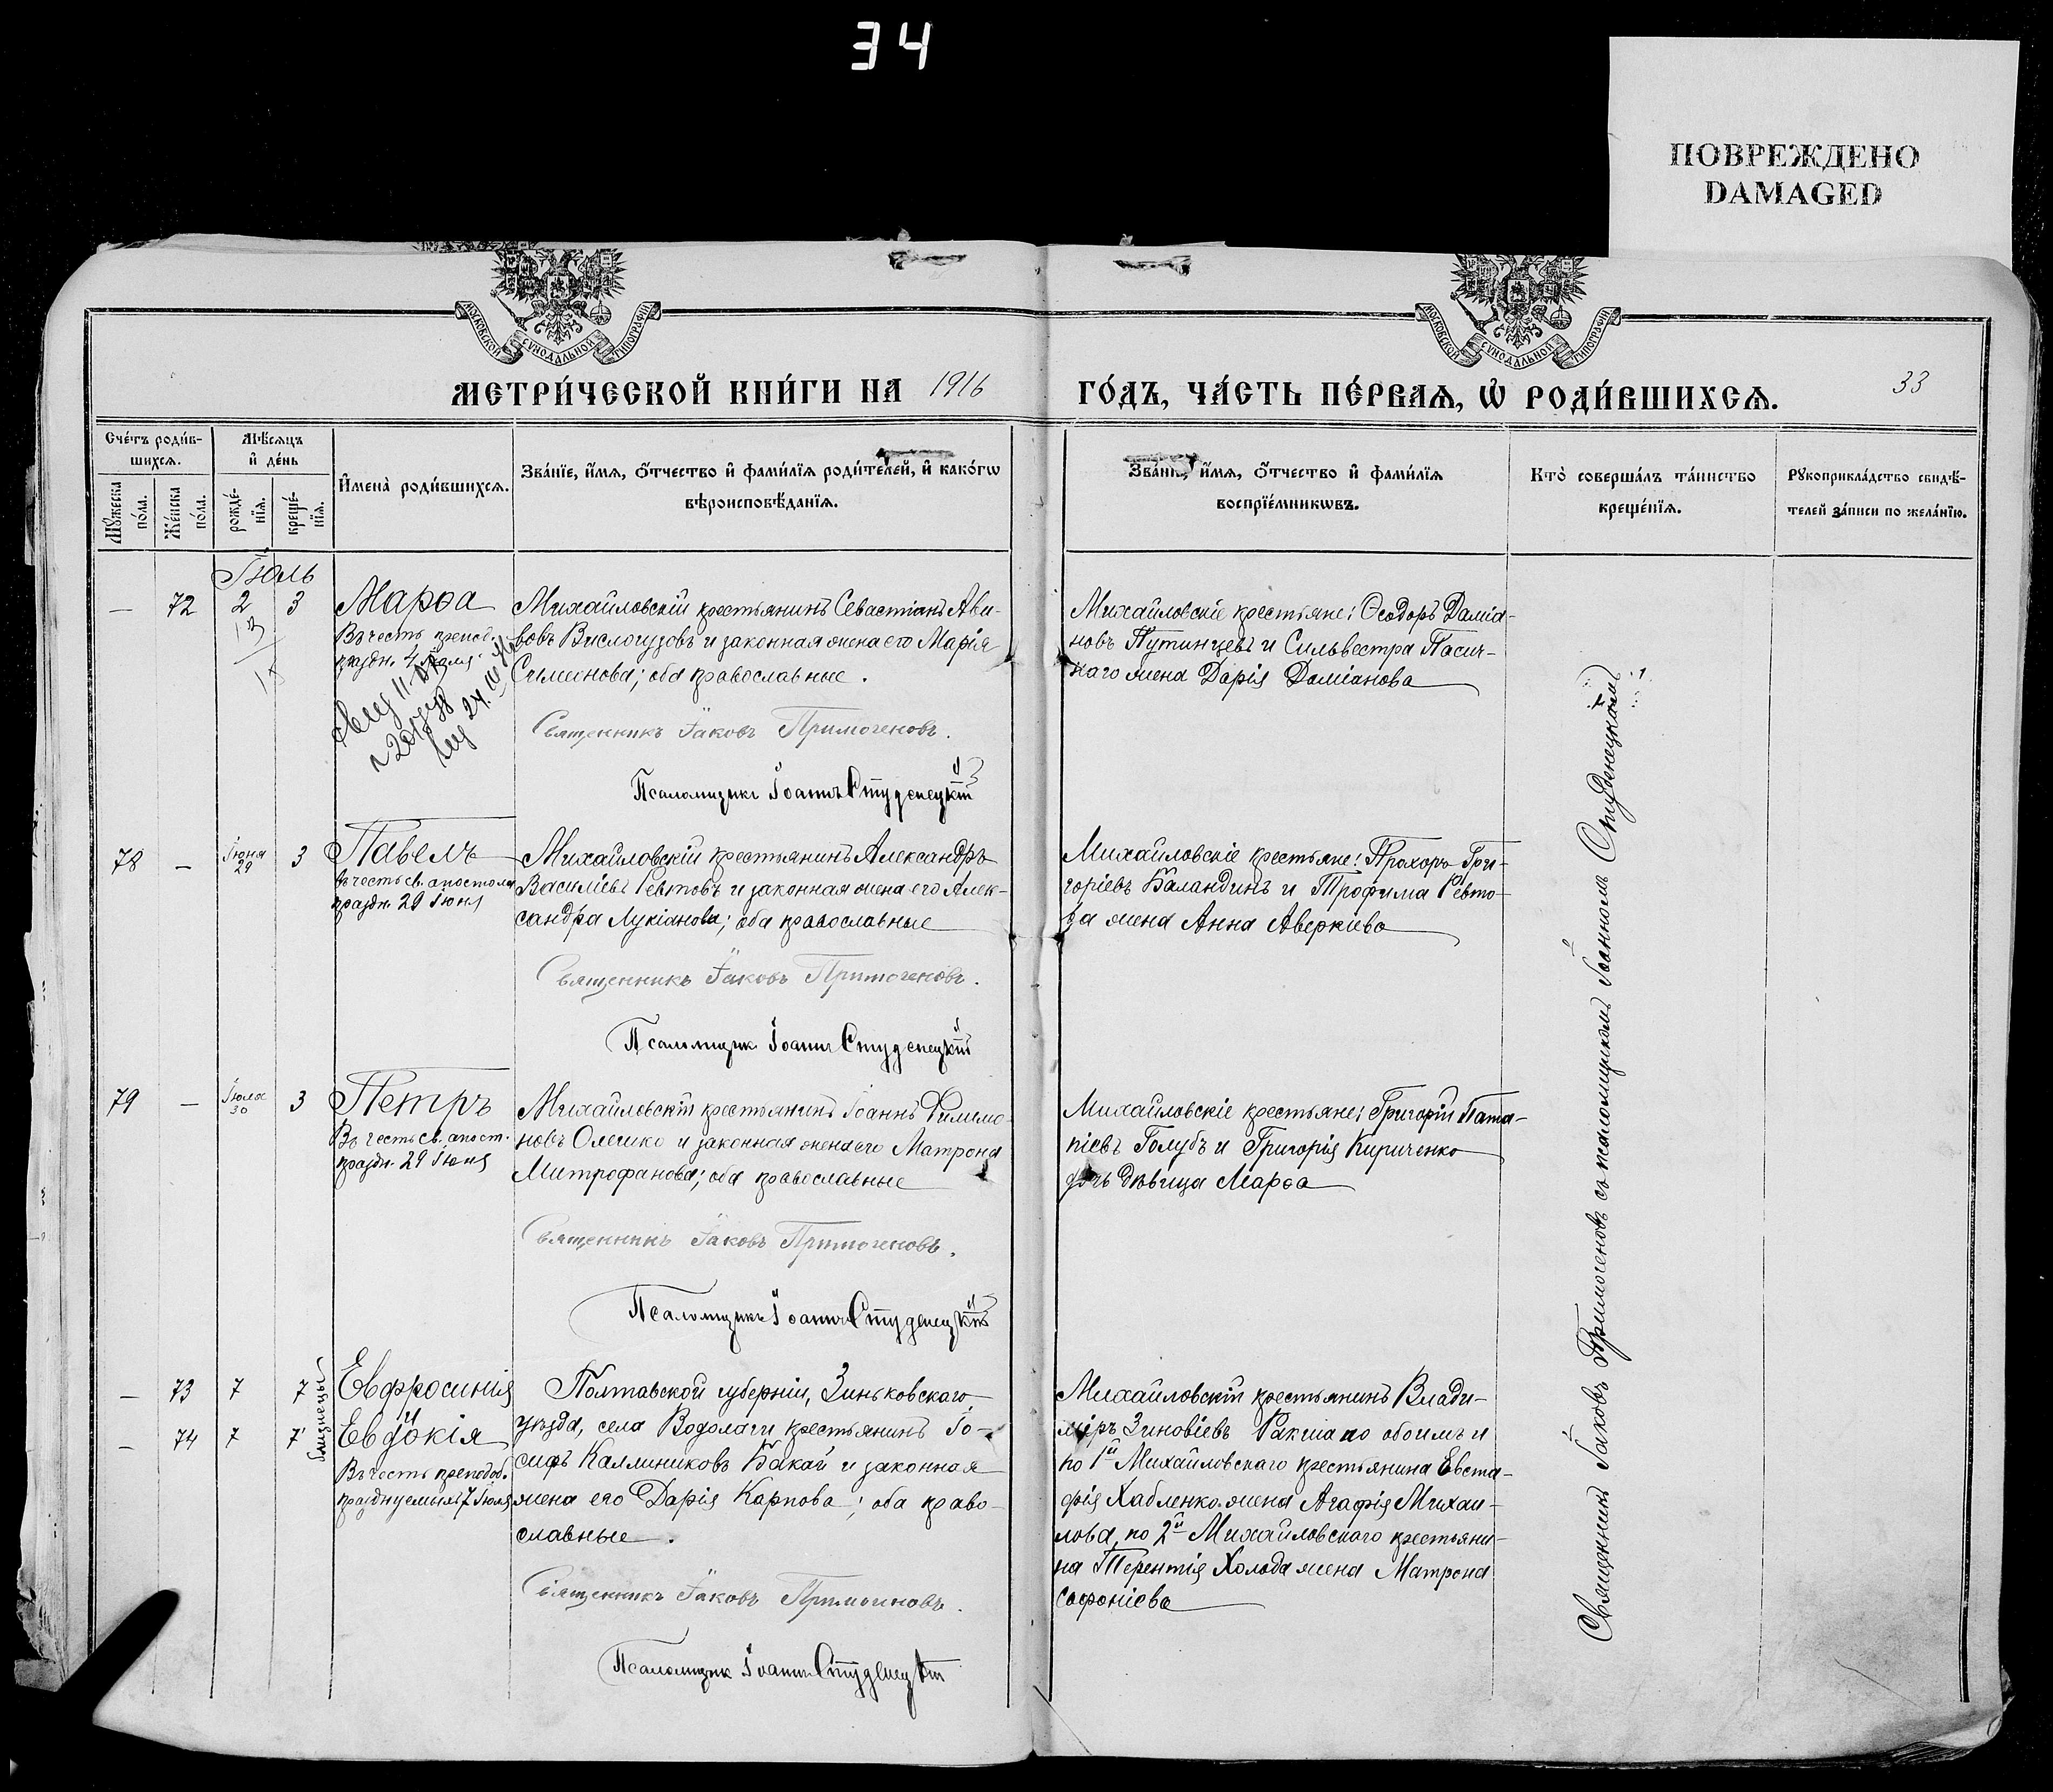 34
ПОВРЕЖДЕНО
DAMAGED
МОСКОВСКОЙ СУНОДАЛЬНОЙ ТИПОГРАФІИ
МОСКОВСКОЙ СУНОДАЛЬНОЙ ТИПОГРАФІИ
МЕТРИ́ЧЕСКОЙ КНИ́ГИ НА 1916 ГО́ДЪ, ЧА́СТЬ ПЕ́РВАѦ, Ѡ҆ РОДИ́ВШИХСѦ.
33
Сче́тъ роди́в-
шихсѧ.
Мѣ́сѧцъ
и҆ де́нь
Мꙋ́жеска
по́ла.
Же́нска
по́ла.
рожде́-
нїѧ.
креще́-
нїѧ.
И҆мена̀ роди́вшихсѧ.
Зва́нїе, и҆́мѧ, ѻ҆́тчество и҆ фами́лїѧ роди́телей, и҆ како́гѡ
вѣроисповѣ́данїѧ.
Зва́нїе, и҆́мѧ, ѻ҆́тчество и҆ фами́лїѧ
воспрїе́мникѡвъ.
Кто̀ соверша́лъ та́инство
креще́нїѧ.
Рꙋкоприкла́дство свидѣ́-
телей за́писи по жела́нїю.
Іюль
— 72 2 3
Марѳа
Въ честь препод.
праздн. 4 Іюля
Михайловскій крестьянинъ Севастіанъ Ави-
вовъ Вислогузовъ и законная жена его Марія
Симеонова; оба православные.
Священникъ Іаковъ Примогеновъ.
Псаломщикъ Іоаннъ Студенецкій
Михайловскіе крестьяне: Ѳеодоръ Даміа-
новъ Путинцевъ и Сильвестра Пасич-
наго жена Дарія Даміанова
78 — Іюня
29 3
Павелъ
въ честь св. апостола
праздн. 29 Іюня
Михайловскій крестьянинъ Александръ
Василіевъ Ревтовъ и законная жена его Алек-
сандра Лукіанова; оба православные
Священникъ Іаковъ Примогеновъ.
Псаломщик Іоаннъ Студенецкій
Михайловскіе крестьяне: Прохоръ Гри-
горіевъ Баландинъ и Трофима Ревто-
ва жена Анна Аверкіева
79 — Іюля
30 3
Петръ
Въ честь св. апост.
праздн. 29 Іюня
Михайловскій крестьянинъ Іоаннъ Филимо-
новъ Олешко и законная жена его Матрона
Митрофанова; оба православные
Священникъ Іаковъ Примогеновъ.
Псаломщикъ Іоаннъ Студенецкій
Михайловскіе крестьяне: Григорій Пата-
піевъ Голубъ и Григорія Кириченко
дочь дѣвица Марѳа
— 73 7 7
— 74 7 7
близнецы
Евфросинія
и
Евдокія
Въ честь преподоб.
празднуемыхъ 7 Іюля
Полтавской губерніи, Зиньковскаго
уѣзда, села Водолаги крестьянинъ Іо-
сифъ Каллиниковъ Бакай и законная
жена его Дарія Карпова; оба право-
славные.
Священникъ Іаковъ Примогеновъ.
Псаломщик Іоаннъ Студенецкій
Михайловскій крестьянинъ Влади-
міръ Зиновіевъ Ракша по обоимъ и
по 1й Михайловскаго крестьянина Евста-
фія Хабленко жена Агафія Михаи-
лова, по 2й Михайловскаго крестьяни-
на Терентія Холода жена Матрона
Софоніева
Священникъ Іаковъ Примогеновъ съ псаломщикомъ Іоанномъ Студенецкимъ